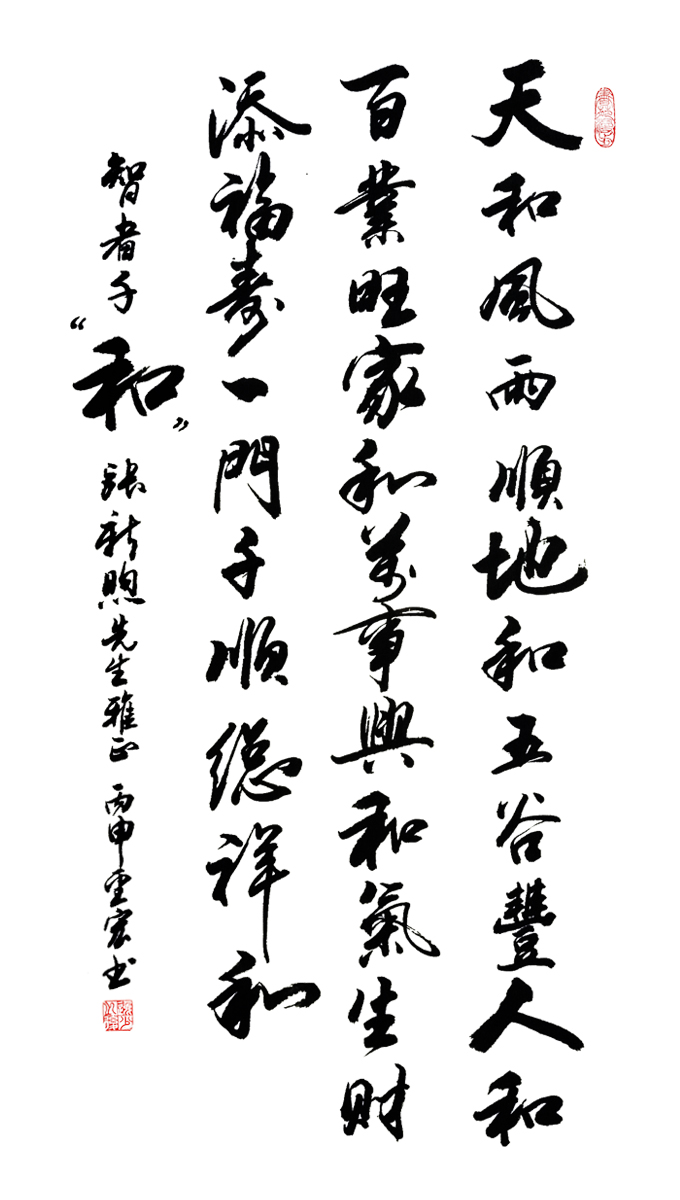 天和風雨順地和五谷豐人和
百業旺家和萬事興和氣生財
添福壽一門千順總祥和
智者千“和”張新煦先生雅正丙申雲宏书